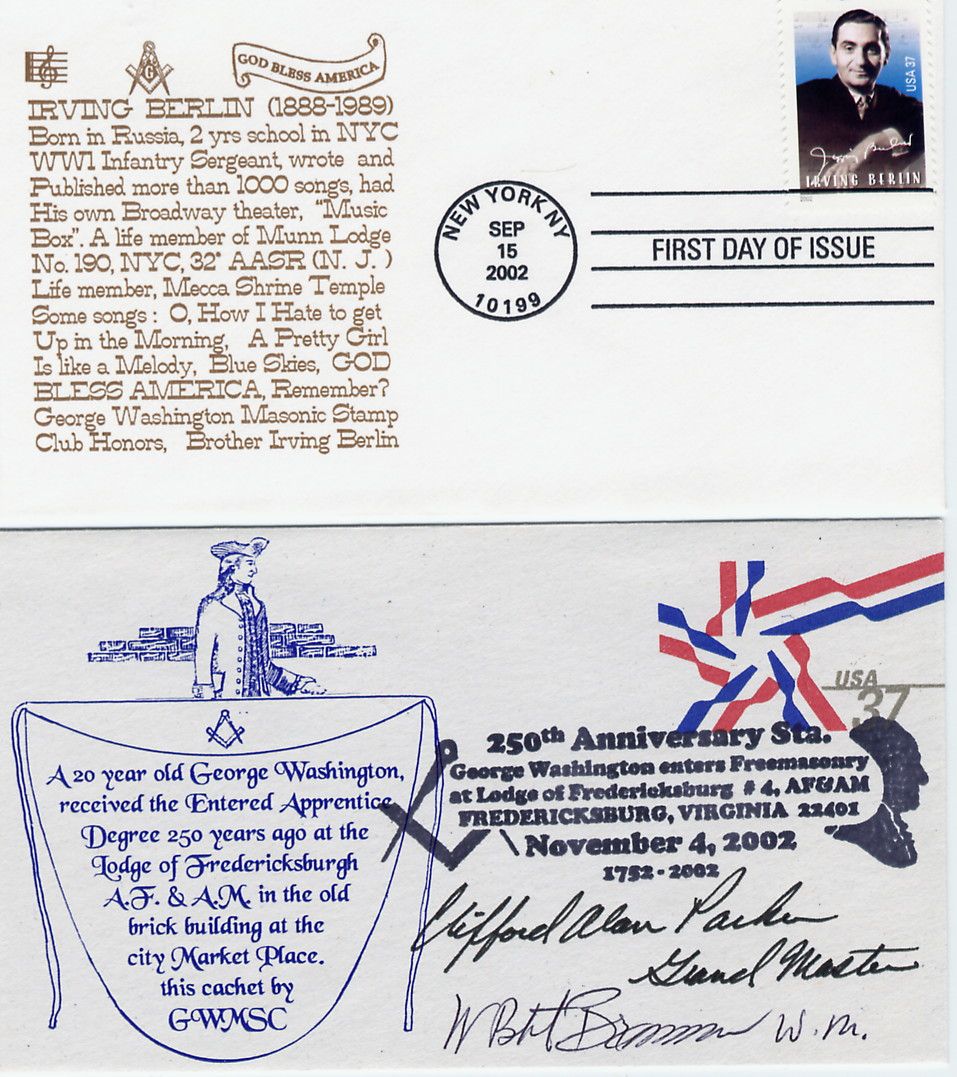 GOD BLESS AMERICA
IRVING BERLIN (1888-1989)
Born in Russia, 2 yrs school in NYC
WW1 Infantry Sergeant, wrote and
Published more than 1000 songs, had
His own Broadway theater, "Music
Box". A life member of Munn Lodge
No. 190, NYC, 32° AASR (N. J. )
Life member, Mecca Shrine Temple
Some songs : O, How I Hate to get
Up in the Morning, A Pretty Girl
Is like a Melody, Blue Skies, GOD
BLESS AMERICA, Remember?
George Washington Masonic Stamp
Club Honors, Brother Irving Berlin
USA 37
Irving Berlin
IRVING BERLIN
2002
NEW YORK NY
SEP
15
2002
10199
FIRST DAY OF ISSUE
G
A 20 year old George Washington,
received the Entered Apprentice
Degree 250 years ago at the
Lodge of Fredericksburgh
A.F. & A.M. in the old
brick building at the
city Market Place.
this cachet by
GWMSC
USA
37
250th Anniversary Sta.
George Washington enters Freemasonry
at Lodge of Fredericksburg # 4, AF&AM
FREDERICKSBURG, VIRGINIA 22401
November 4, 2002
1752 - 2002
Clifford Alan Parker
Grand Master
W.M.